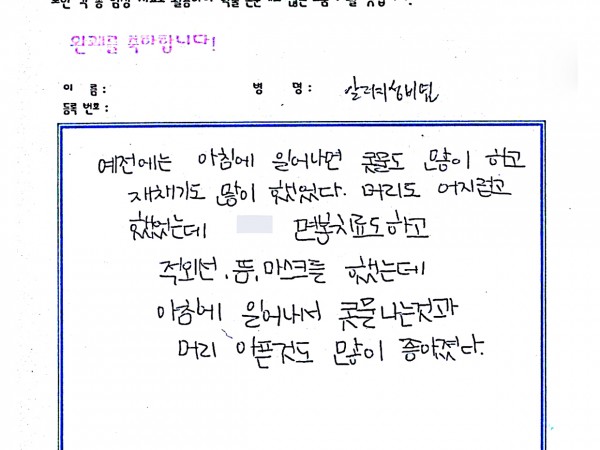 완쾌를 축하합니다!
이 름 : 병 명 : 알러지성비염
등록 번호 :
예전에는 아침에 일어나면 콧물도 많이 하고
재채기도 많이 했었다. 머리도 어지럽고
했었는데 면봉치료도하고
적외선, 뜸, 마스크를 했는데
아침에 일어나서 콧물나는것과
머리 아픈것도 많이 좋아졌다.